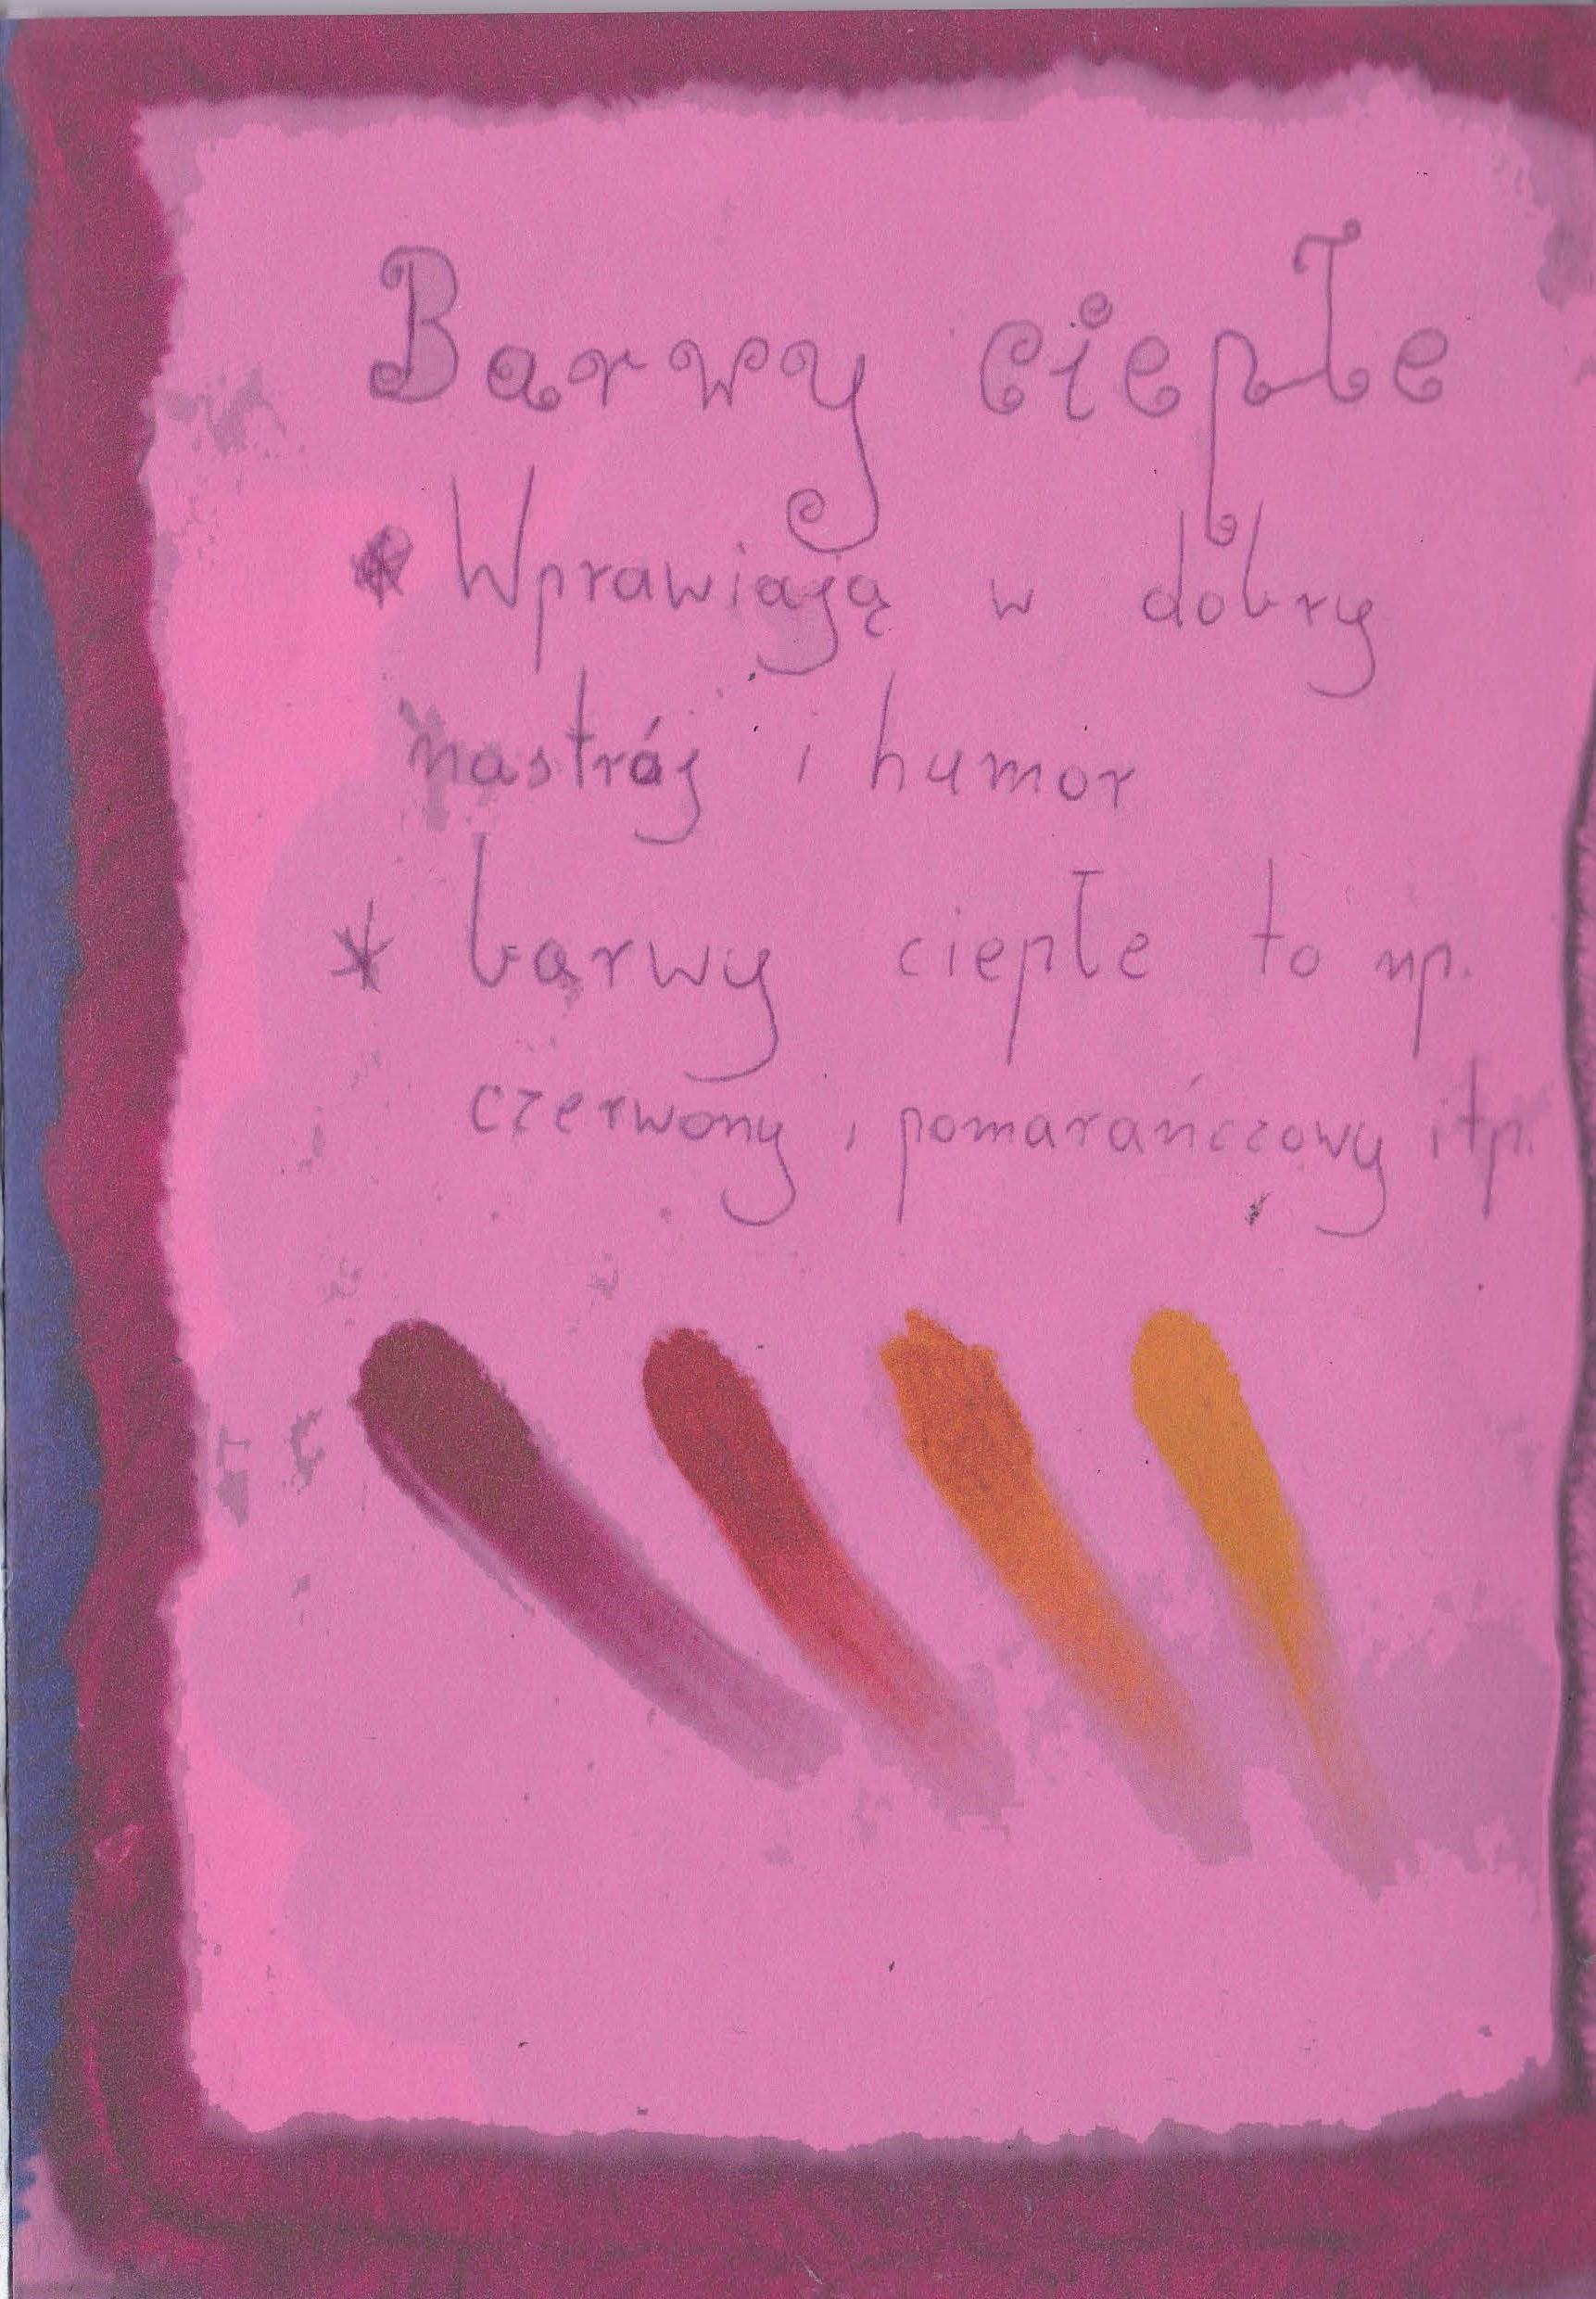 Barwy ciepłe
* Wprawiają w dobry
nastrój i humor
* barwy ciepłe to np.
czerwony, pomarańczowy itp.